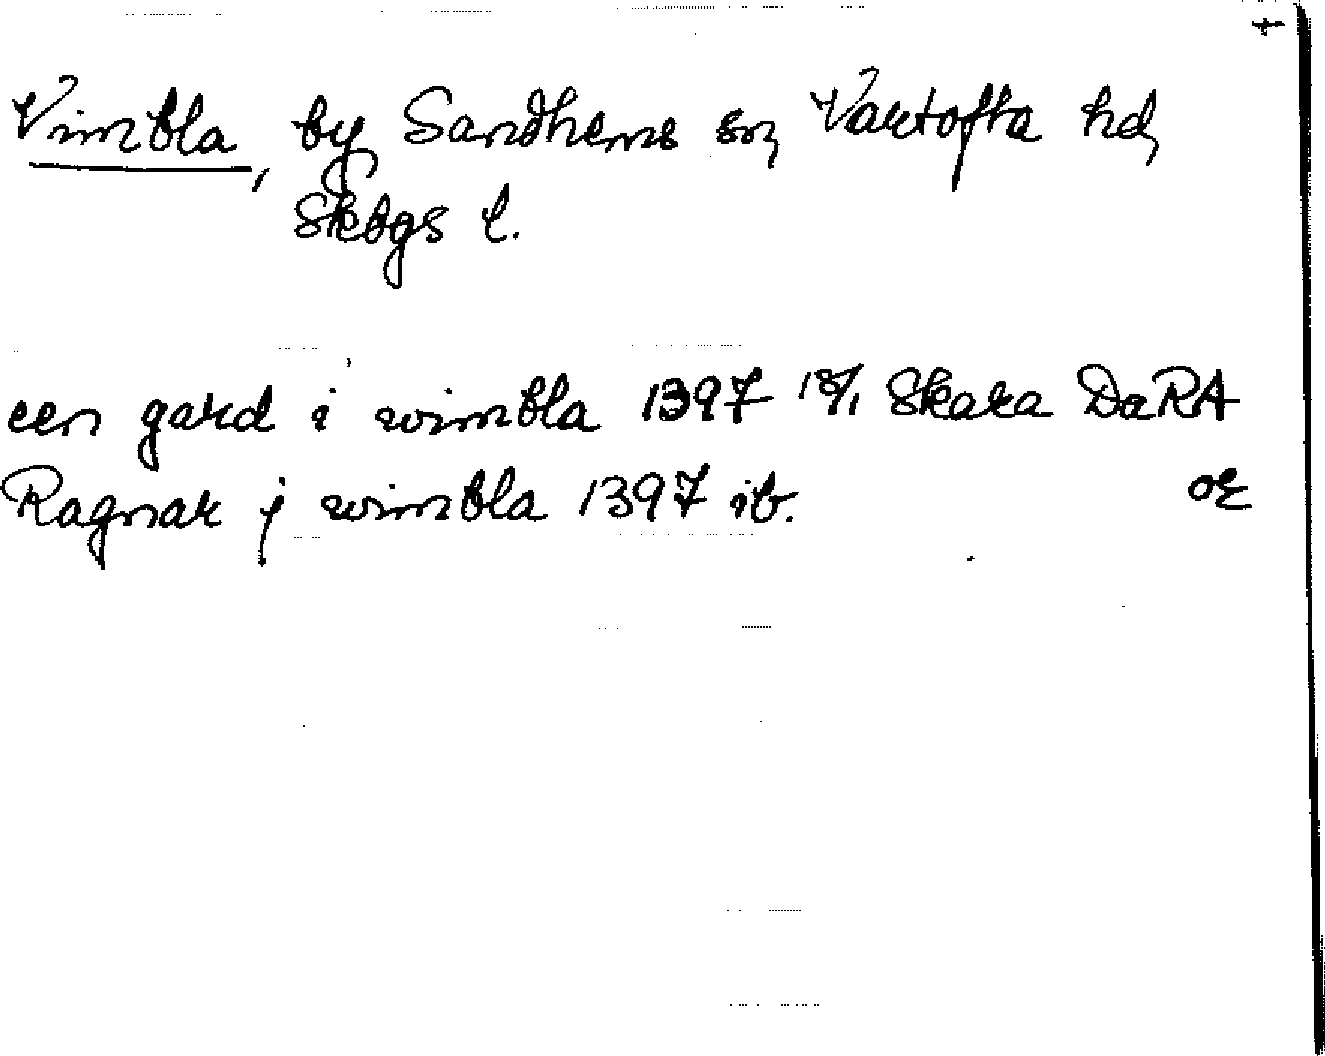 Vimbla, by Sandhems sn, Vartofta hd,
Skbgs l.
een gard i wimbla 1397 18/1 Skara DaRA
Ragnar j wimbla 1397 ib. OE